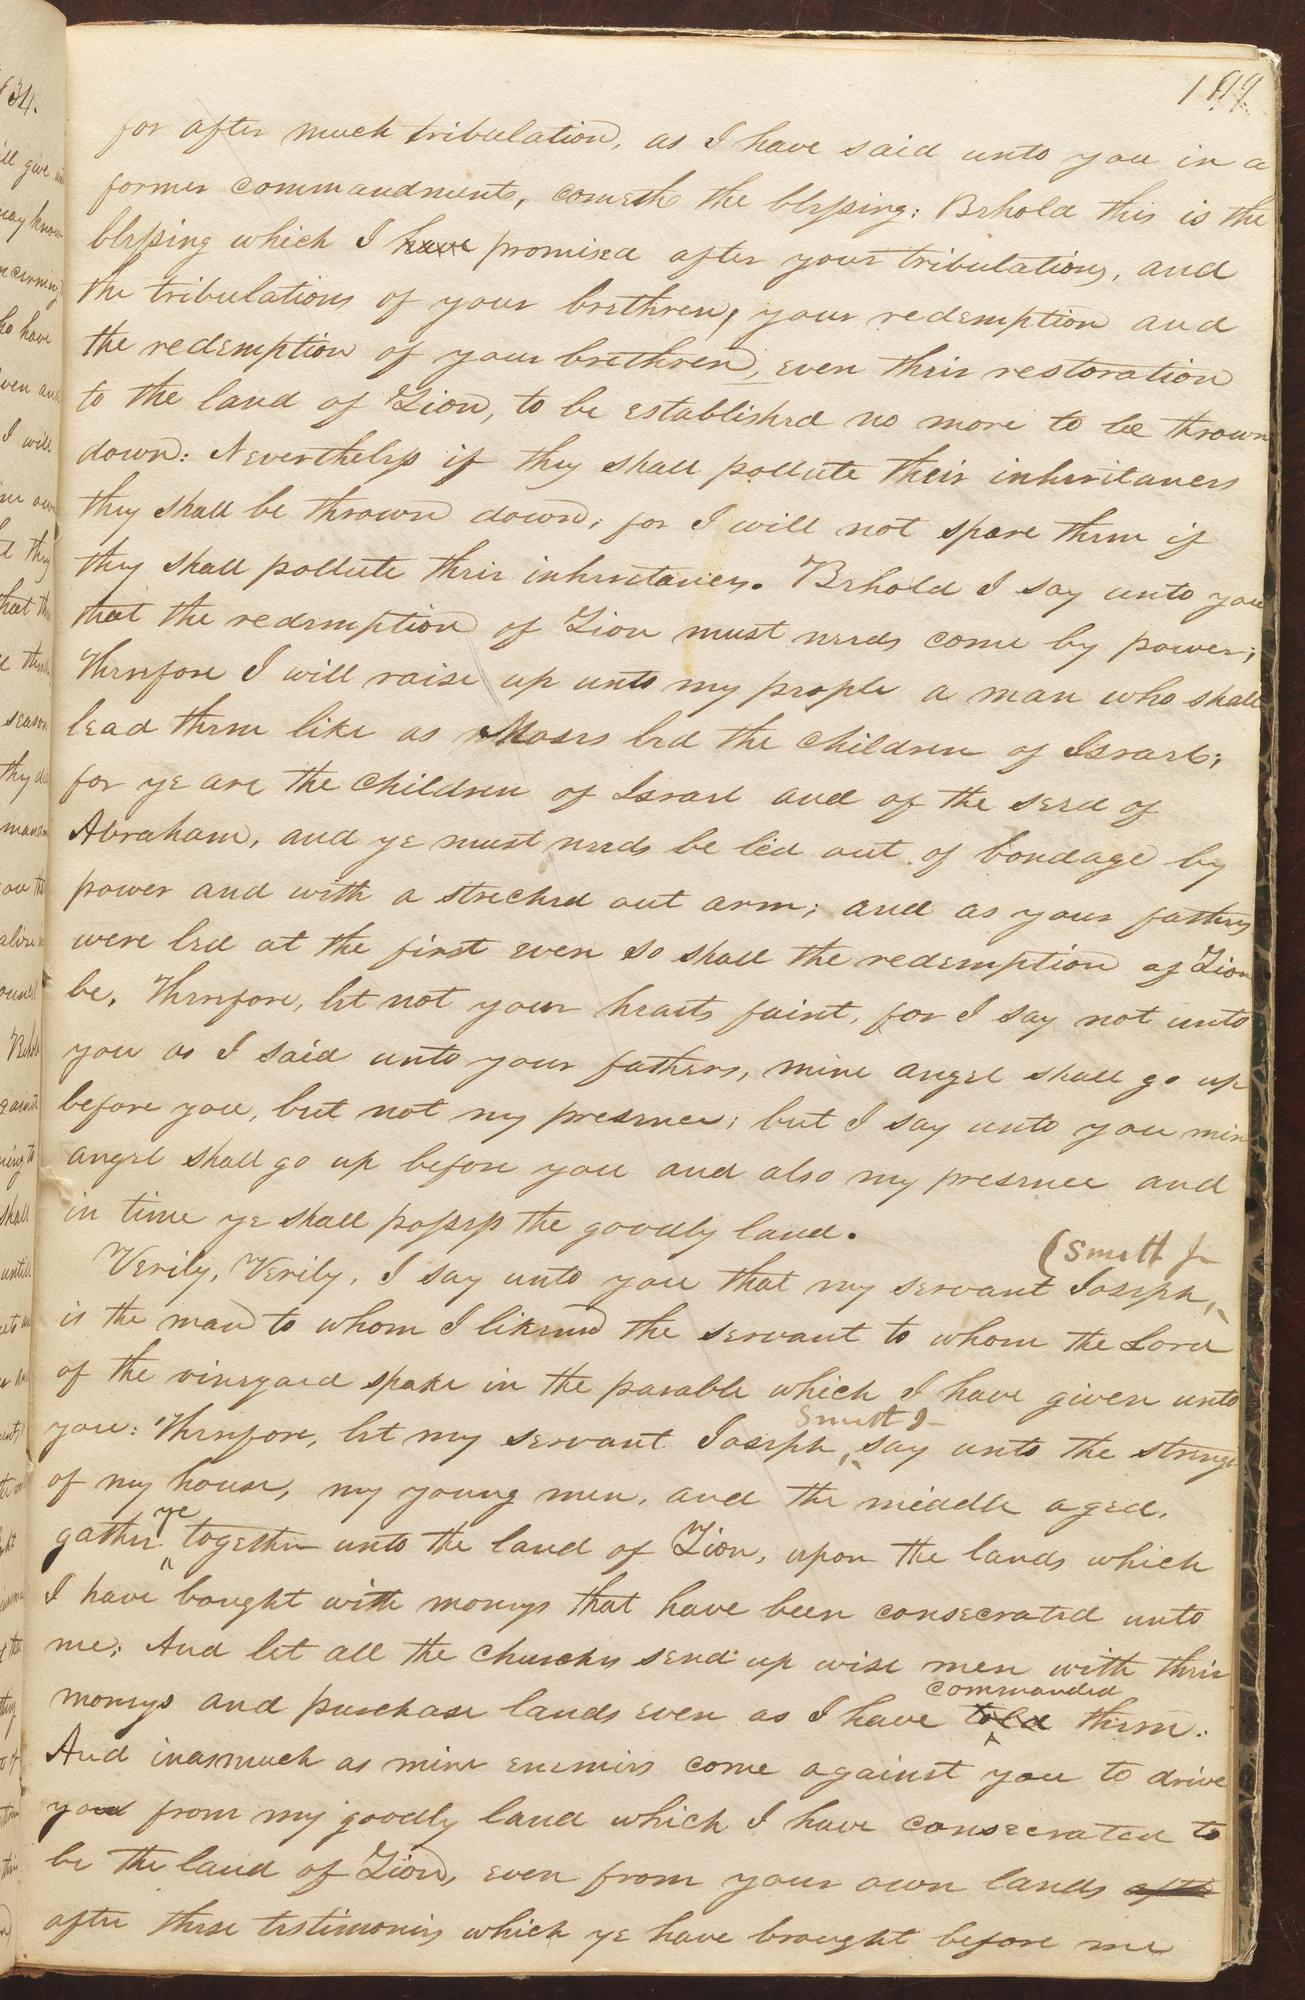 199
for after much tribulation, as I have said unto you in a
former commandment, cometh the blessing: Behold this is the
blessing which I have promised after your tribulations, and
the tribulations of your brethren, your redemption and
the redemption of your brethren, even their restoration
to the land of Zion, to be established no more to be thrown
down: Nevertheless if they shall pollute their inheritances
they shall be thrown down; for I will not spare them if
they shall pollute their inheritances. Behold I say unto you
that the redemption of Zion must needs come by power;
Therefore I will raise up unto my people a man who shall
lead them like as Moses led the children of Israel;
for ye are the children of Israel and of the seed of
Abraham, and ye must needs be led out of bondage by
power and with a streched out arm; and as your fathers
were led at the first even so shall the redemption of Zion
be. Therefore, let not your hearts faint, for I say not unto
you as I said unto your fathers, mine angel shall go up
before you, but not my presence; but I say unto you mine
angel shall go up before you and also my presence and
in time ye shall possess the goodly land.
(Smith Jr
Verily, Verily, I say unto you that my servant Joseph,
is the man to whom I likened the servant to whom the Lord
of the vineyard spake in the parable which I have given unto
Smith Jr
you: Therefore, let my servant Joseph, say unto the strength
of my house, my young men, and the middle aged,
ye
gather together unto the land of Zion, upon the lands which
I have bought with moneys that have been consecrated unto
me; And let all the churches send up wise men with their
commanded
moneys and purchase lands even as I have told them:
And inasmuch as mine enemies come against you to drive
you from my goodly land which I have consecrated to
be the land of Zion, even from your own lands
after these testimonies which ye have brought before me